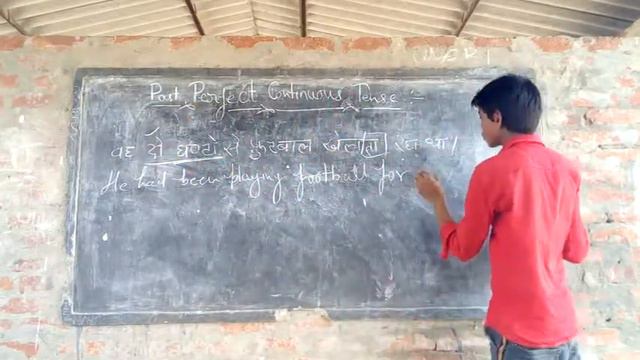 Past Perfect Continuous Tense :-
वह दो घण्टो से फुटबाल खेलता रहा था।
He had been playing football for